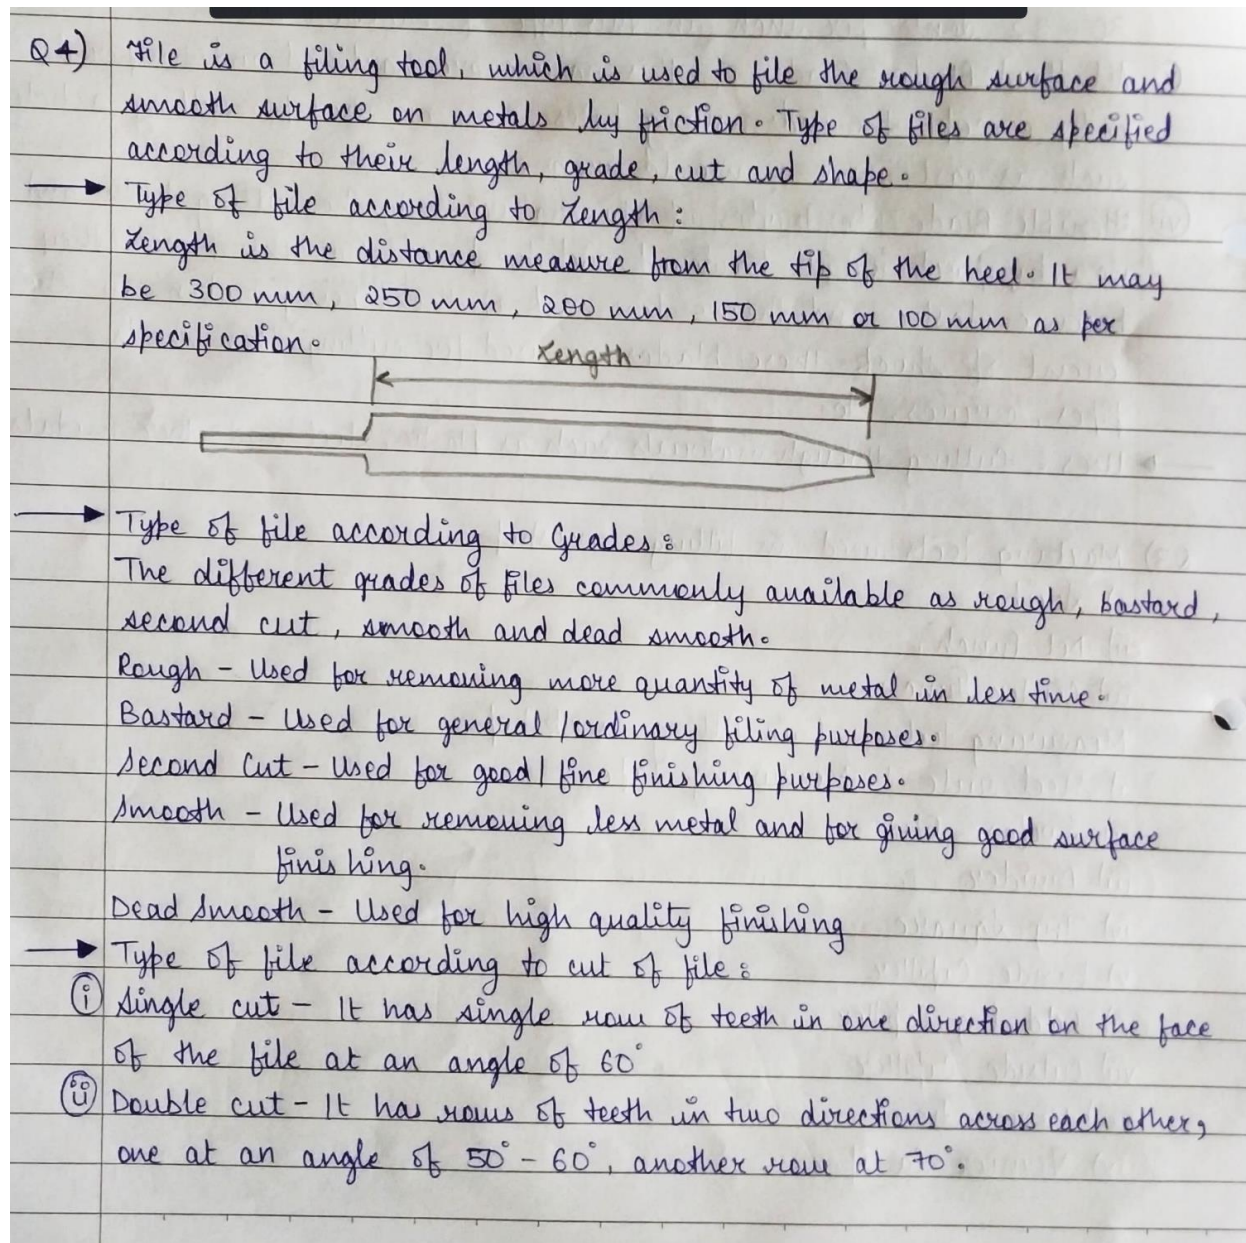 Q4) File is a filing tool, which is used to file the rough surface and
smooth surface on metals by friction. Type of files are specified
according to their length, grade, cut and shape.
→ Type of file according to Length:
Length is the distance measure from the tip of the heel. It may
be 300 mm, 250 mm, 200 mm, 150 mm or 100 mm as per
specification.
Length
→ Type of file according to Grades:
The different grades of files commonly available as rough, bastard,
second cut, smooth and dead smooth.
Rough - Used for removing more quantity of metal in less time.
Bastard - Used for general/ordinary filing purposes.
Second Cut - Used for good/fine finishing purposes.
Smooth - Used for removing less metal and for giving good surface
finishing.
Dead Smooth - Used for high quality finishing
→ Type of file according to cut of file:
(i) Single cut - It has single row of teeth in one direction on the face
of the file at an angle of 60°
(ii) Double cut - It has rows of teeth in two directions across each other,
one at an angle of 50° - 60°, another row at 70°.